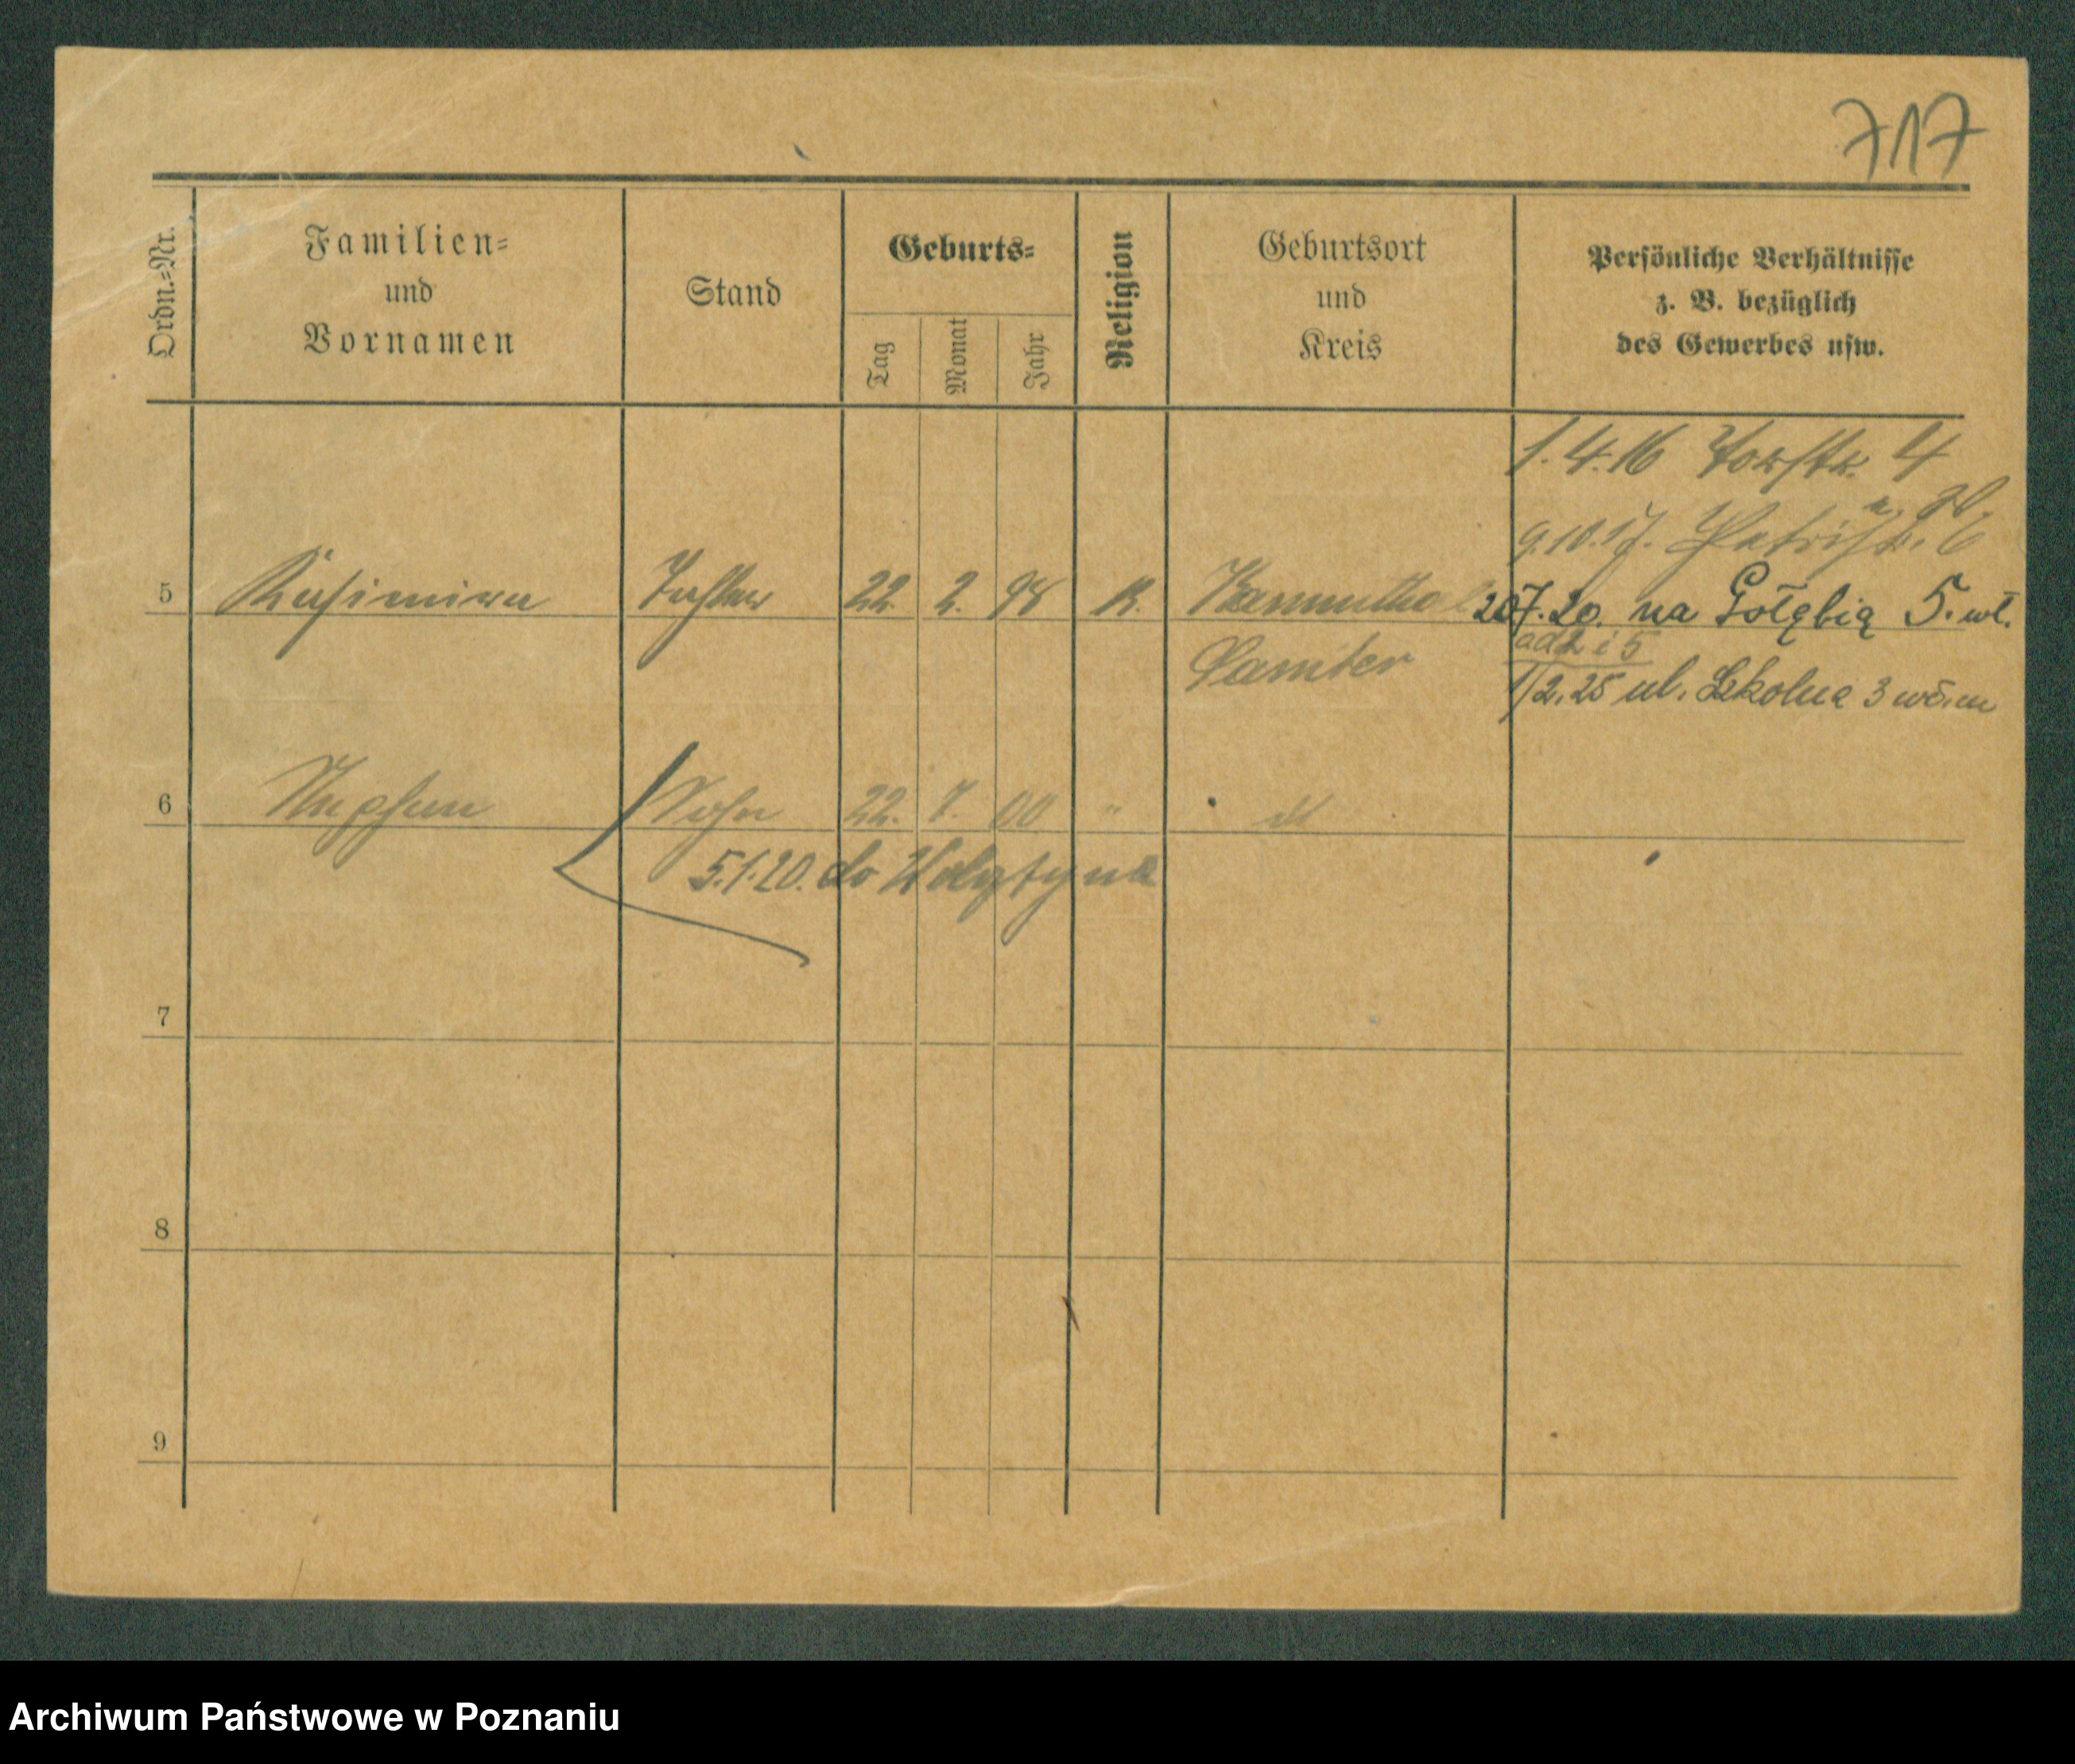 717
Ordn.=Nr.
Familien=
und
Vornamen
Stand
Geburts=
Tag
Monat
Jahr
Religion
Geburtsort
und
Kreis
Persönliche Verhältnisse
z. B. bezüglich
des Gewerbes usw.
1.4.16 4
9.10.17. Petristr. 6
5 Kasimira Tochter 22. 2. 98 K. 20 7. 20. na Gołębią 5. wł.
Samter
ad 2 i 5
1/2.25 ul. Szkolna 3
6 Stephan Sohn 22. 7. 00 "
5.1.20. do
7
8
9
Archiwum Państwowe w Poznaniu